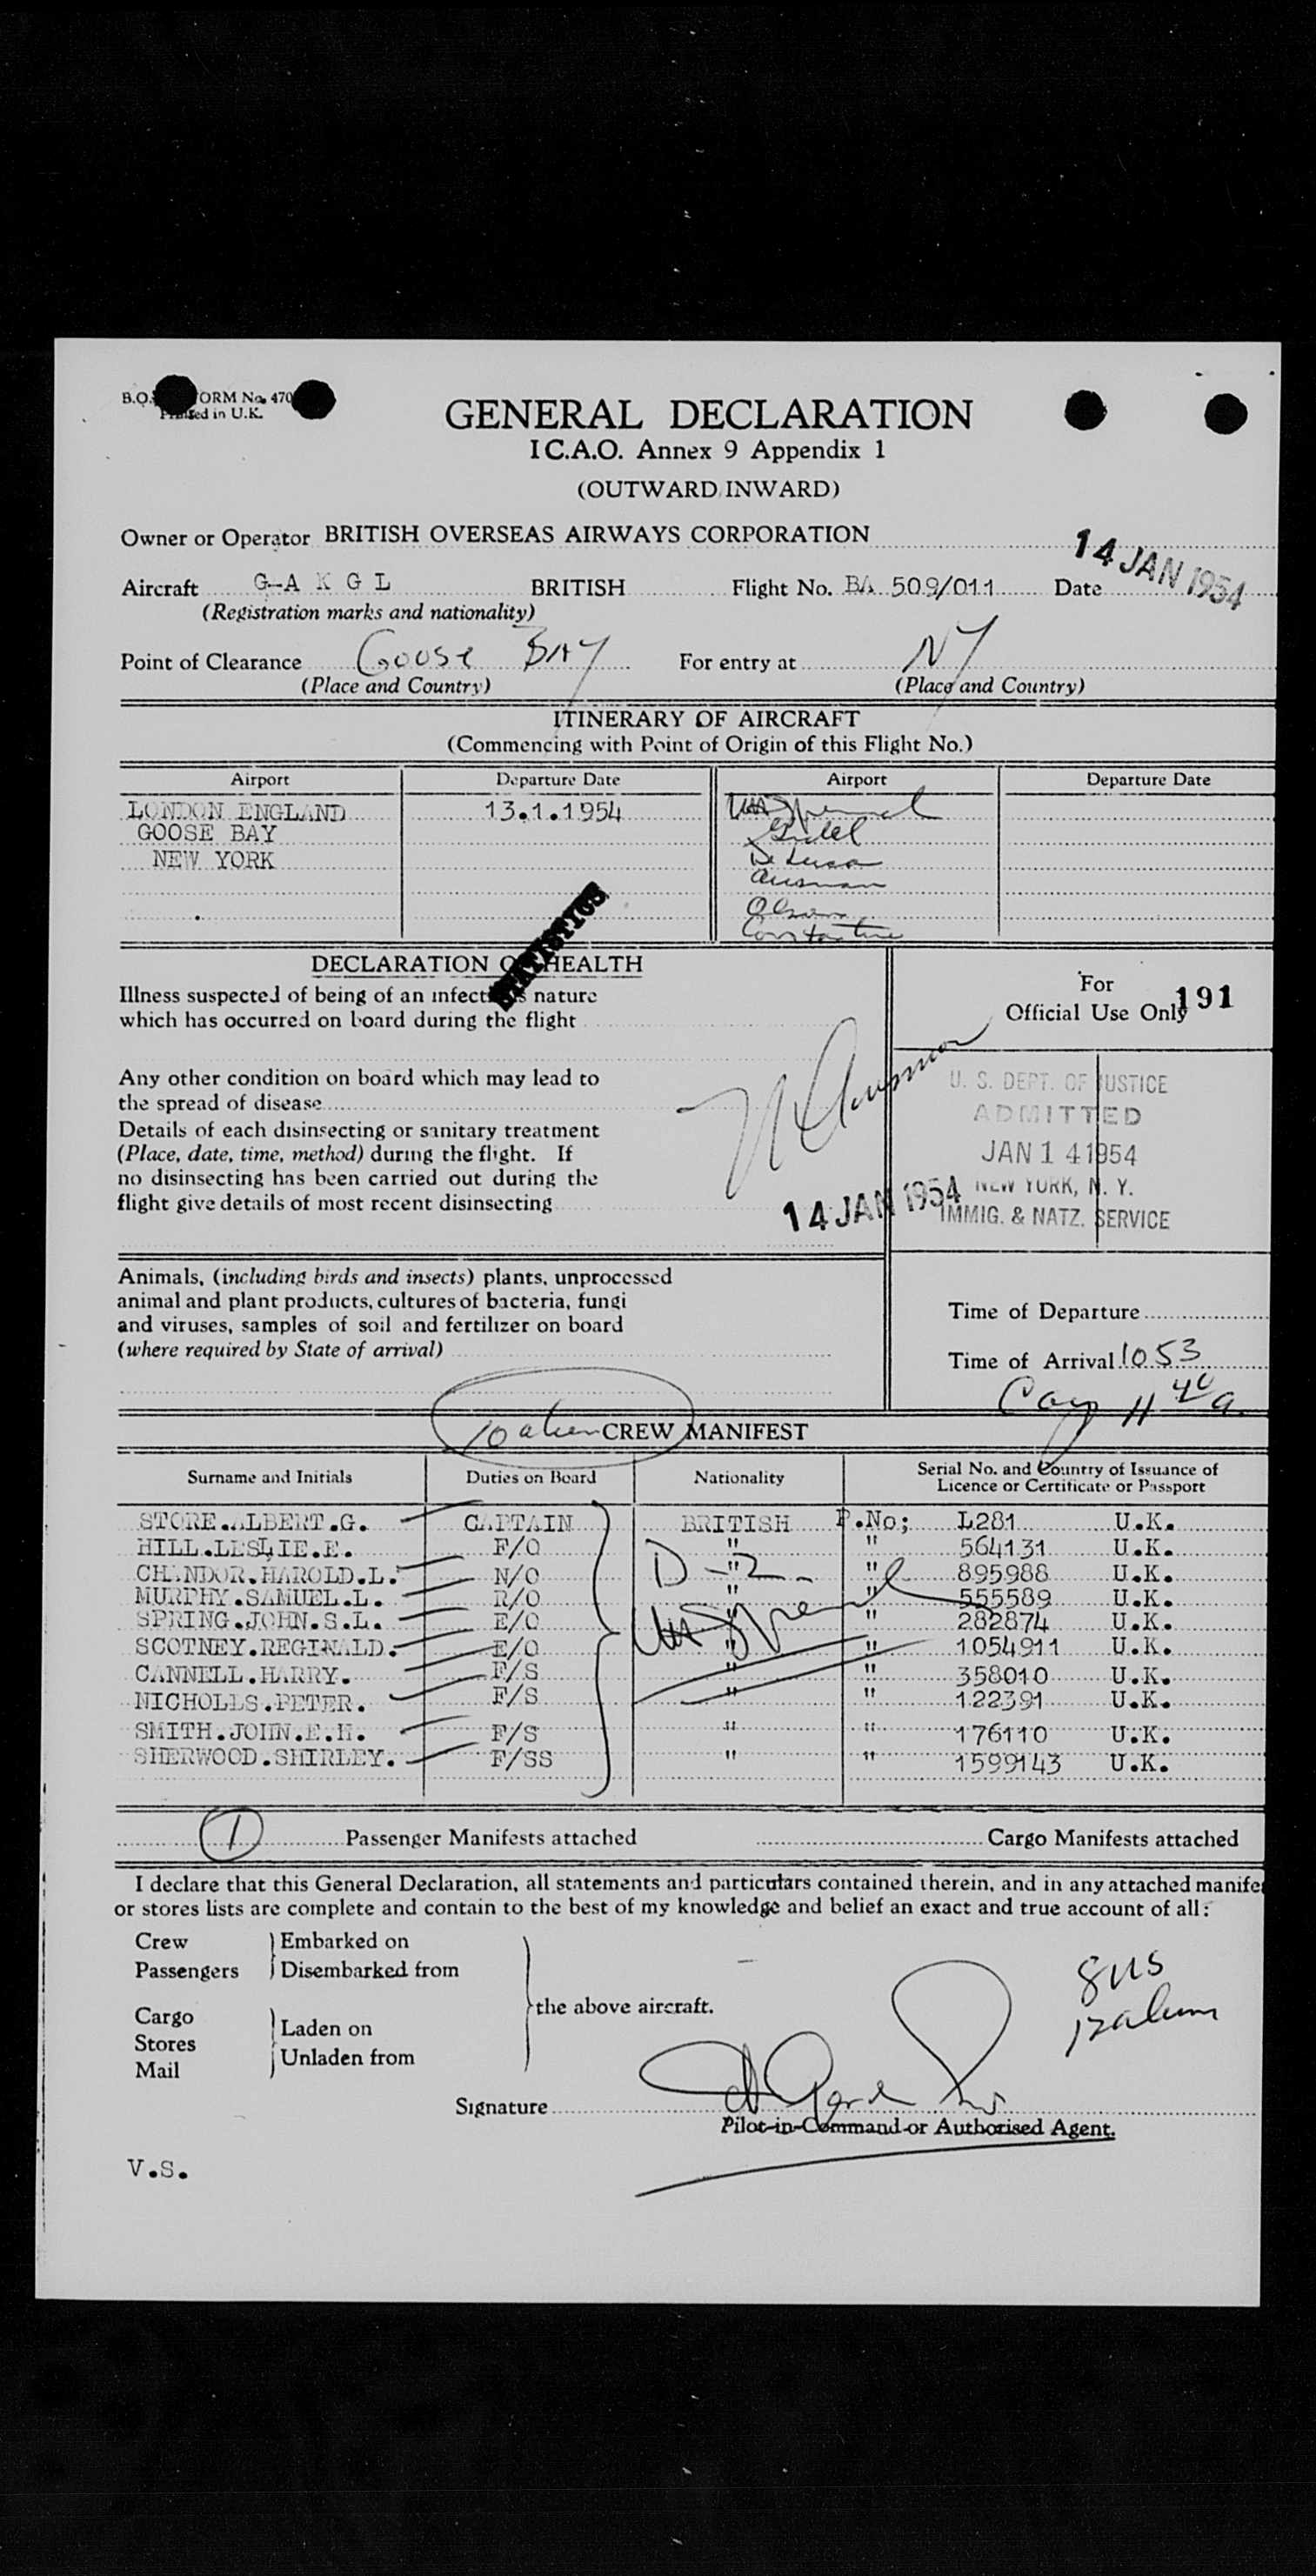 B.O. FORM No. 470
Printed in U.K.
GENERAL DECLARATION
I C.A.O. Annex 9 Appendix 1
(OUTWARD INWARD)
Owner or Operator BRITISH OVERSEAS AIRWAYS CORPORATION
14 JAN 1954
Aircraft G-A K G L BRITISH Flight No. BA 509/011 Date
(Registration marks and nationality)
Point of Clearance Goose BAY For entry at NY
(Place and Country) (Place and Country)
ITINERARY OF AIRCRAFT
(Commencing with Point of Origin of this Flight No.)
Airport Departure Date Airport Departure Date
LONDON ENGLAND 13.1.1954
GOOSE BAY
NEW YORK De Lusa
Ausman
Olson
Constantine
STATISTICS
DECLARATION OF HEALTH
Illness suspected of being of an infectious nature
which has occurred on board during the flight
For
Official Use Only 191
Any other condition on board which may lead to
the spread of disease
Details of each disinsecting or sanitary treatment
(Place, date, time, method) during the flight. If
no disinsecting has been carried out during the
flight give details of most recent disinsecting
14 JAN 1954
U. S. DEPT. OF JUSTICE
ADMITTED
JAN 14 1954
NEW YORK, N. Y.
IMMIG. & NATZ. SERVICE
Animals, (including birds and insects) plants, unprocessed
animal and plant products, cultures of bacteria, fungi
and viruses, samples of soil and fertilizer on board
(where required by State of arrival)
Time of Departure
Time of Arrival 1053
11 40 a.
10 alien CREW MANIFEST
Surname and Initials Duties on Board Nationality Serial No. and Country of Issuance of
Licence or Certificate or Passport
STORE.ALBERT.G. CAPTAIN BRITISH P.No; L281 U.K.
HILL.LESLIE.E. F/O " " 564131 U.K.
CHANDOR.HAROLD.L. N/O D-2- " 895988 U.K.
MURPHY.SAMUEL.L. R/O " " 555589 U.K.
SPRING.JOHN.S.L. E/O " 282874 U.K.
SCOTNEY.REGINALD. E/O " " 1054911 U.K.
CANNELL.HARRY. F/S " " 358010 U.K.
NICHOLLS.PETER. F/S " " 122391 U.K.
SMITH.JOHN.E.H. F/S " " 176110 U.K.
SHERWOOD.SHIRLEY. F/SS " " 1599143 U.K.
1 Passenger Manifests attached Cargo Manifests attached
I declare that this General Declaration, all statements and particulars contained therein, and in any attached manife
or stores lists are complete and contain to the best of my knowledge and belief an exact and true account of all:
Crew Embarked on
Passengers Disembarked from
the above aircraft.
Cargo Laden on
Stores
Mail Unladen from
8 US
Signature
Pilot-in-Command or Authorised Agent.
V.S.